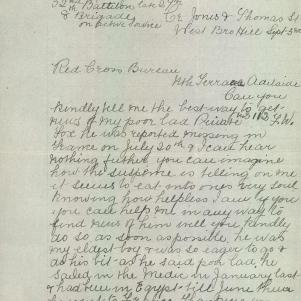 32nd Battalion late 27th
8 Brigade
on active service
C/o Jones & Thomas St
West Bro Hill Sept 3rd
Red Cross Bureau
Nth Terrace Adelaide
Can you
kindly tell me the best way to get
news of my poor lad Private
For he was reported missing in
France on July 20th & I can hear
nothing further you can imagine
how the suspense is telling on me
it seems to eat into ones very soul
knowing how helpless I am if you
can help me in any way to
find news of him will you kindly
do so as soon as possible he was
my eldest boy & was so eager to go &
do his bit as he said poor lad, he
sailed in the Medic in January last
& had been in Egypt till June then